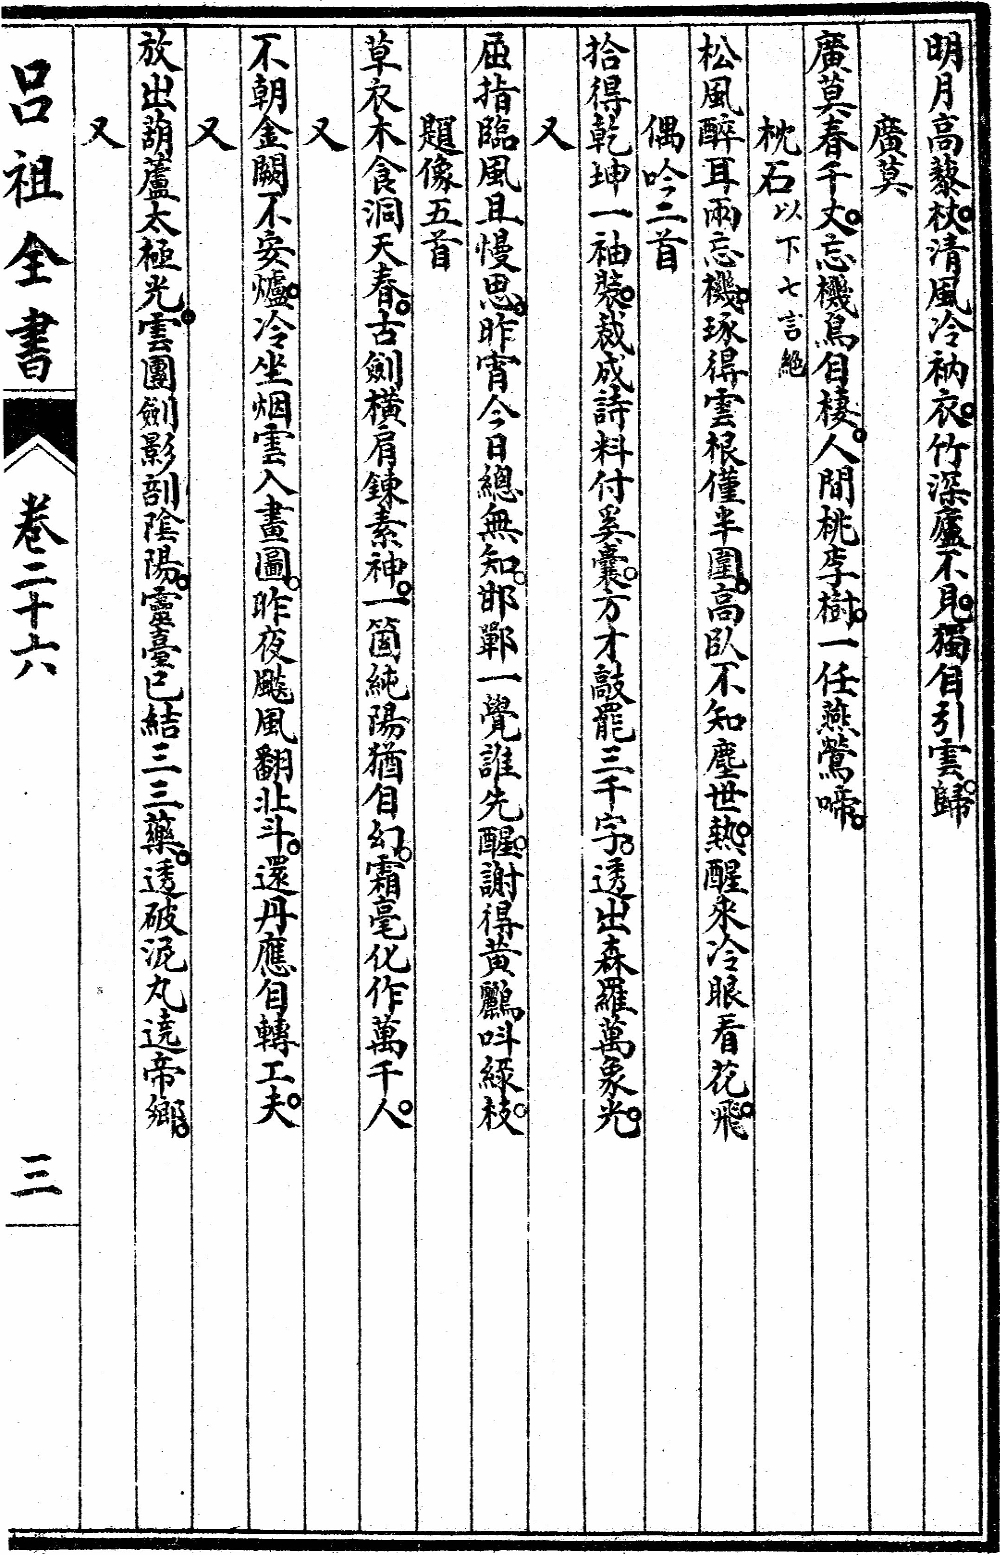 明月高藜杖。清風冷衲衣。竹深廬不見。獨自引雲歸。
廣莫
廣莫春千丈。忘機鳥自棲。人間桃李樹。一任燕鶯啼。
枕石以下七言絕
松風醉耳兩忘機。琢得雲根僅半圍。高臥不知塵世熱。醒來冷眼看花飛。
偶吟二首
拾得乾坤一袖裝。裁成詩料付奚囊。方才敲罷三千字。透出森羅萬象光。
又
屈指臨風且慢思。昨宵今日總無知。邯鄲一覺誰先醒。謝得黃鸝呌綠枝。
題像五首
草衣木食洞天春。古劍橫肩鍊素神。一箇純陽猶自幻。霜毫化作萬千人。
又
不朝金闕不安爐。冷坐烟雲入畫圖。昨夜颷風翻北斗。還丹應自轉工夫。
又
放出葫蘆太極光。雲團劍影剖陰陽。靈臺已結三三藥。透破泥丸遶帝鄉。
又
呂祖全書
卷二十六
三